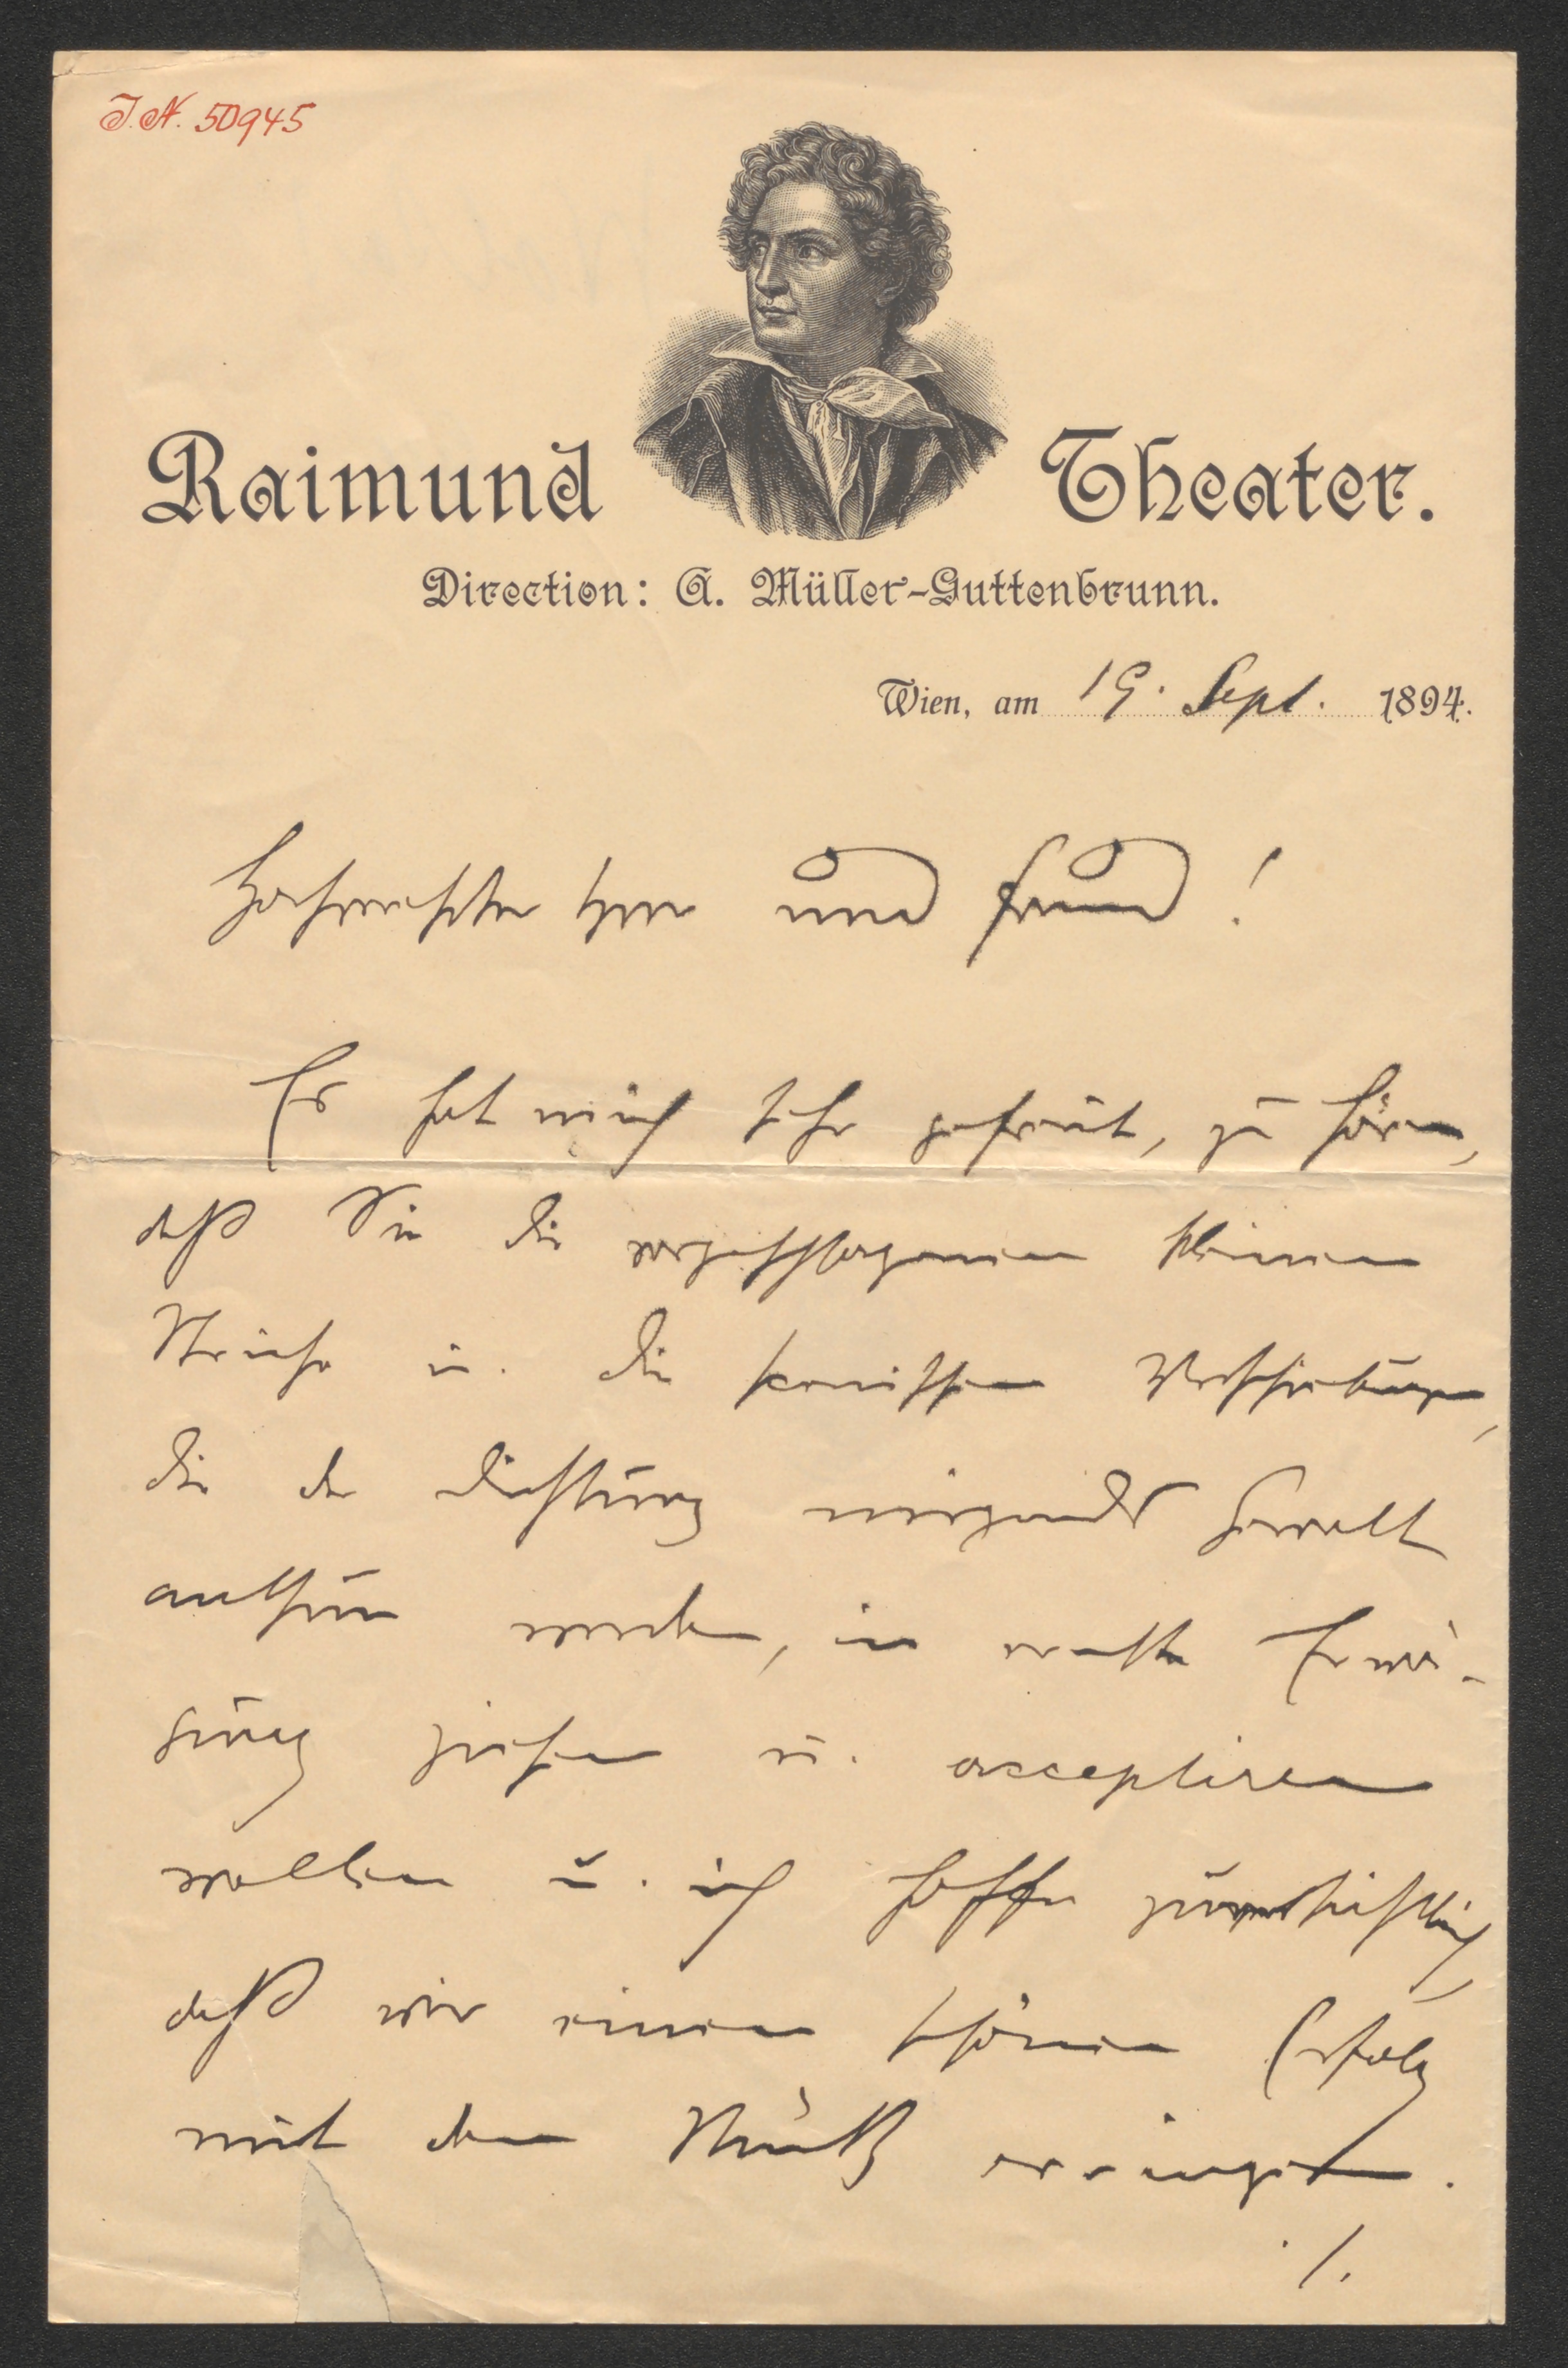 I.N. 50945
Raimund Theater.
Direction: A. Müller-Guttenbrunn.
Wien, am 19. Sept. 1894.
Hochverehrter Herr und Freund!
Es hat mich sehr gefreut, zu hören,
daß Sie die vorgeschlagenen kleinen
Striche u. die scenischen Verschiebungen,
die der Dichtung nirgends Gewalt
anthun werden, in ernste Erwä-
gung ziehen u. acceptiren
wollen u. ich hoffe zuversichtlich,
daß wir einen schönen Erfolg
mit dem Stück erringen.
./.